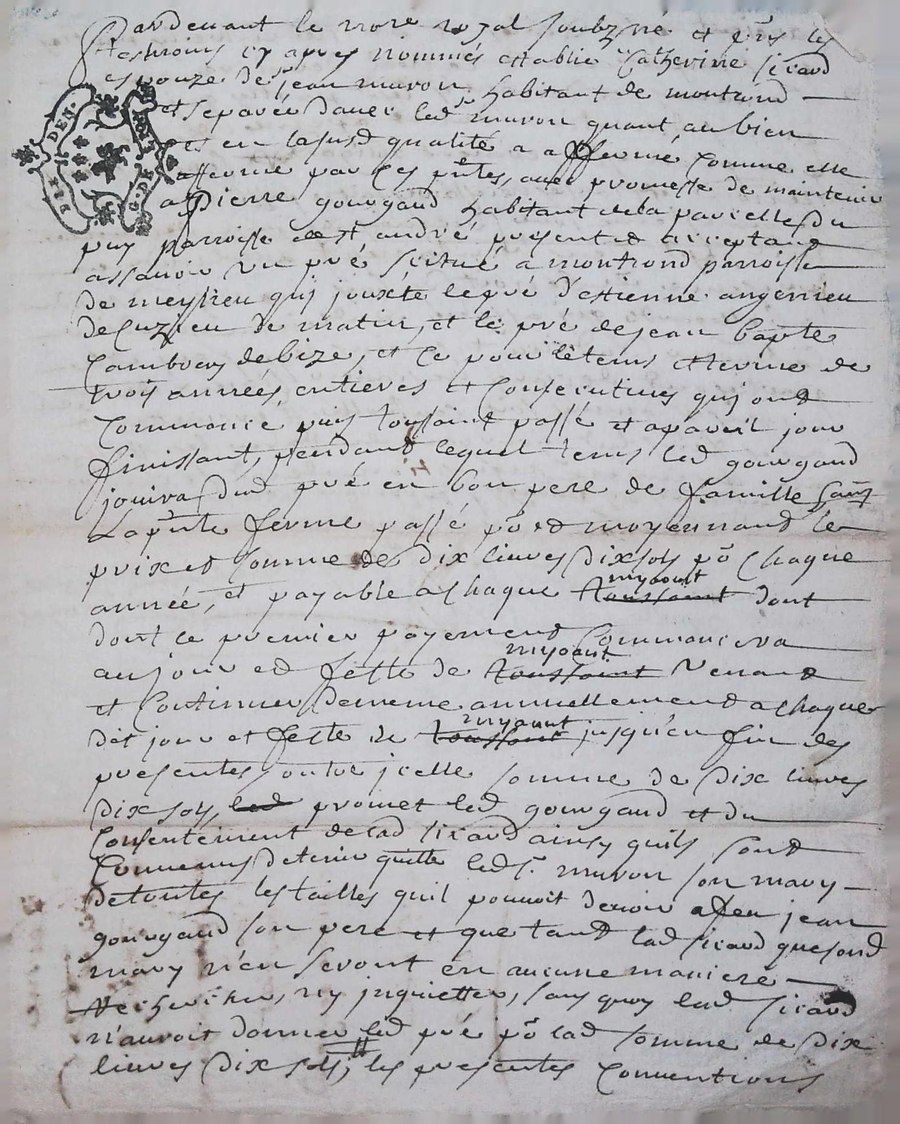 Pardevant le no.re royal soubz.né et p.ns les
tesmoins cy apres nommés establie Catherine sicard
espouze de s.r jean muron habitant de montrond
et separée d'avec led s.r muron quant au bien
en lasusd qualité a afermé comme elle
afferme par ces p.ntes, avec promesse de maintenir
a Pierre gourgaud habitant dela parcelle du
puy parroisse de st andré present et acceptant
assavoir un pré scitué a montrond parroisse
de meylieu qui jouxte le pré d'estienne angenieu
de cuzieu de matin, et le pré de jean bapte
Cambray de bize, et ce pour le tems et terme de
trois années entieres et Consecutives qui ont
Commancé puis toussaint passé et a pareil jour
finissant, pendant lequel tems led gourgaud
jouira dud pré en bon pere de famille
La p.nte ferme passé p.r et moyennant le
prix et somme de dix livres dix sols p.r chaque
année, et payable a chaque toussaint myaoust dont
dont le premier payement Commancera
au jour et feste de toussaint myaoust venant
et Continuer de meme annuellement a chaque
dit jour et feste de toussaint myaoust jusqu'en fin des
presentes outre jcelle somme de dix livres
dix sols, led promet led gourgaud et du
Consentement de lad sicard ainsy quils sont
Convenus de tenir quitte led s.r muron son mary
de toutes les tailles quil pouvoit devoir a feu jean
gourgaud son pere et que tant lad sicard que sond
mary n'en seront en aucune maniere
Recherchés, ny jnquiettes, sans quoy lad sicard
n'auroit donner led pré p.r lad somme de dix
livres dix sols, les presentes Conventions
GDE LYON
DEN.